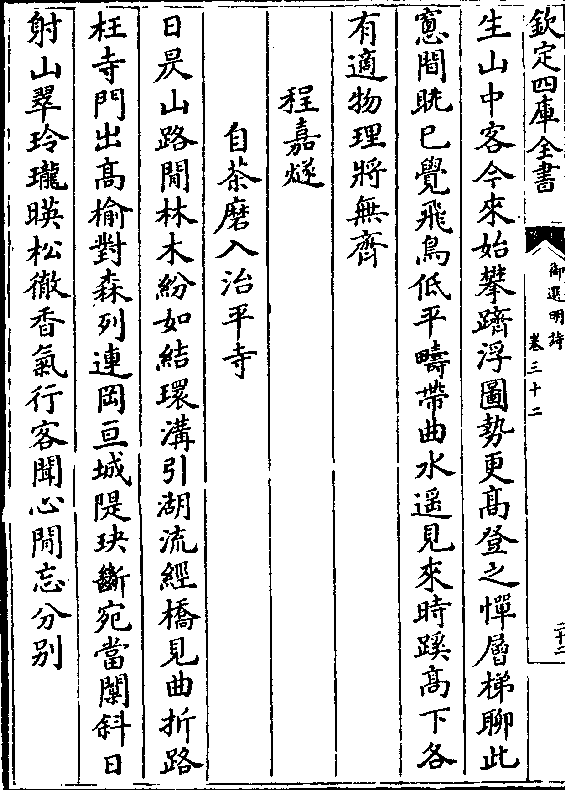 欽定四庫全書
御選明詩
卷三十二
二十二
生山中客今來始攀躋浮圖勢更高登之憚層梯聊此
窻間眺已覺飛鳥低平疇帶曲水遥見來時蹊高下各
有適物理將無齊
程嘉燧
自茶磨入治平寺
日昃山路閒林木紛如結環溝引湖流經橋見曲折路
枉寺門出高榆對森列連岡亘城隄玦斷宛當闑斜日
射山翠玲瓏暎松徹香氣行客聞心閒忘分别